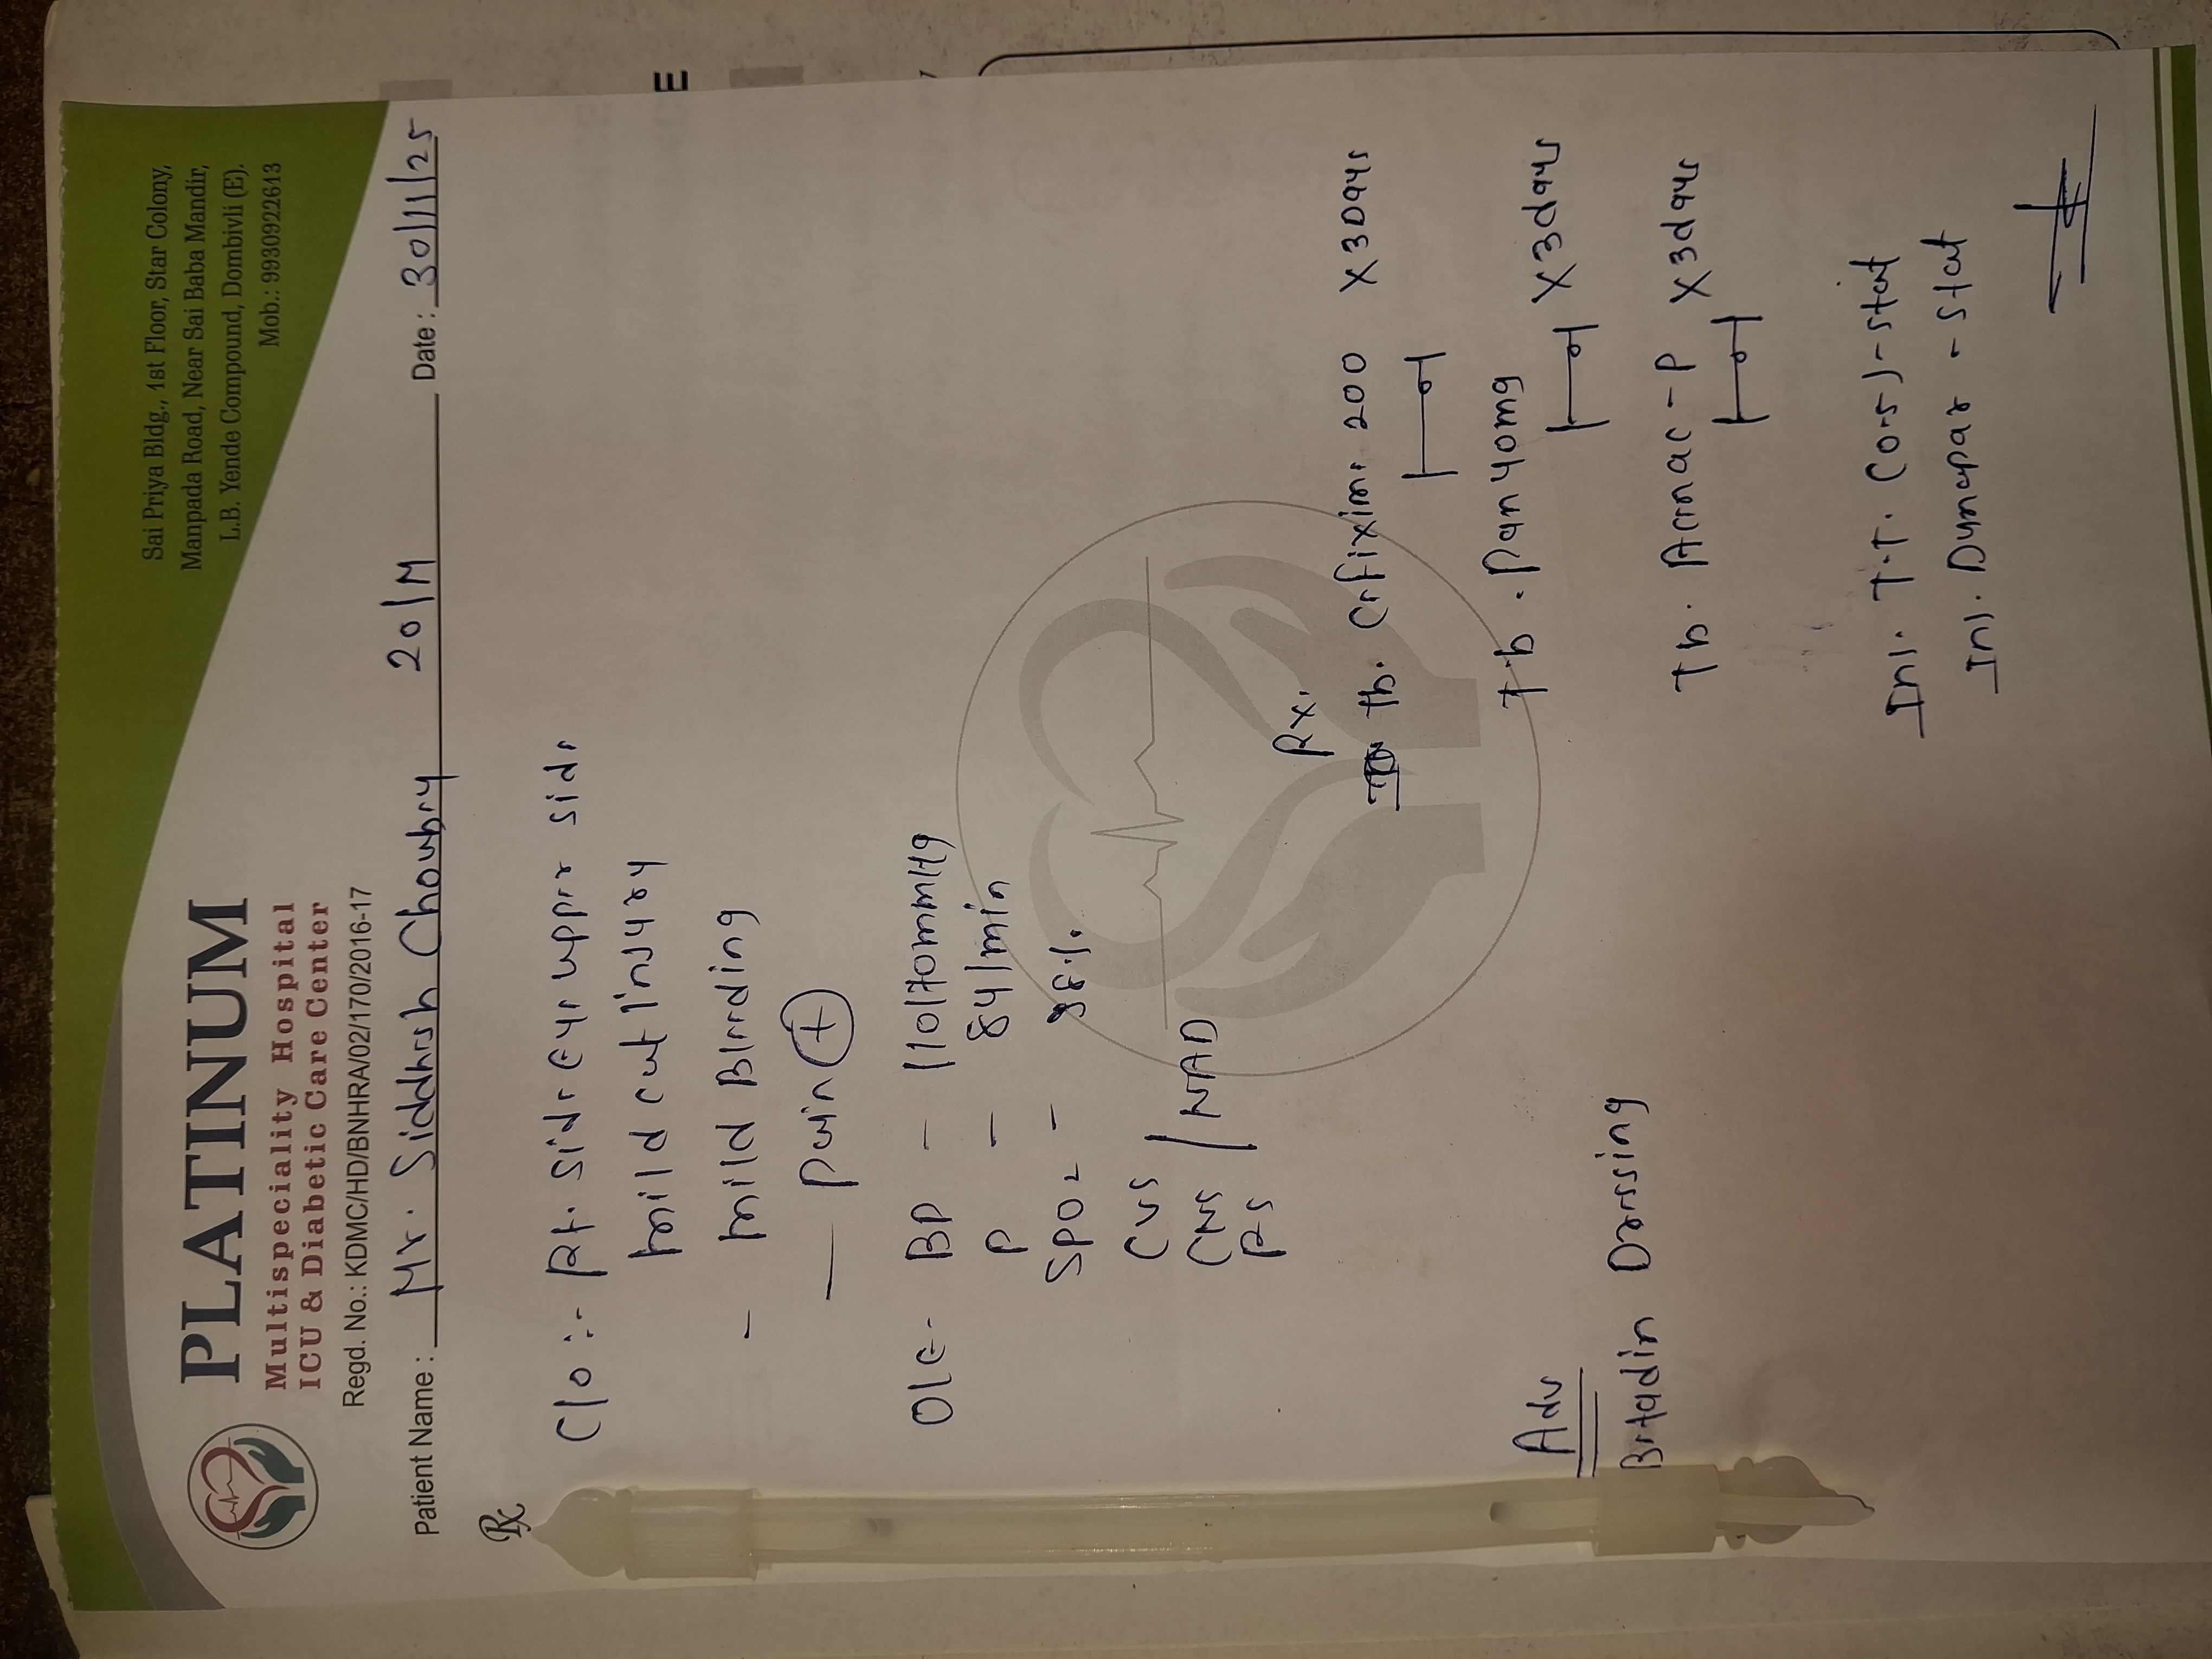 PLATINUM
Multispeciality Hospital
ICU & Diabetic Care Center
Regd. No.: KDMC/HD/BNHRA/02/170/2016-17
Sai Priya Bldg., 1st Floor, Star Colony,
Manpada Road, Near Sai Baba Mandir,
L.B. Yende Compound, Dombivli (E).
Mob.: 9930922613
Patient Name : Mr. Siddhesh Choubey 20/M Date : 30/11/25
Rx
C/O :- Rt. side eye upper side
mild cut injury
- mild Bleeding
— pain (+)
O/E- BP - 110/70mmHg
P - 84/min
SPO2 - 98%
CVS
CNS / NAD
RS
Rx.
Tb. Cefixime 200 X 3Days
Tb. Pan 40mg X 3days
Tb. Acenac-P X 3days
Adv
Betadin Dressing
Inj. T.T. (0.5) - stat
Inj. Dynapar - stat
E